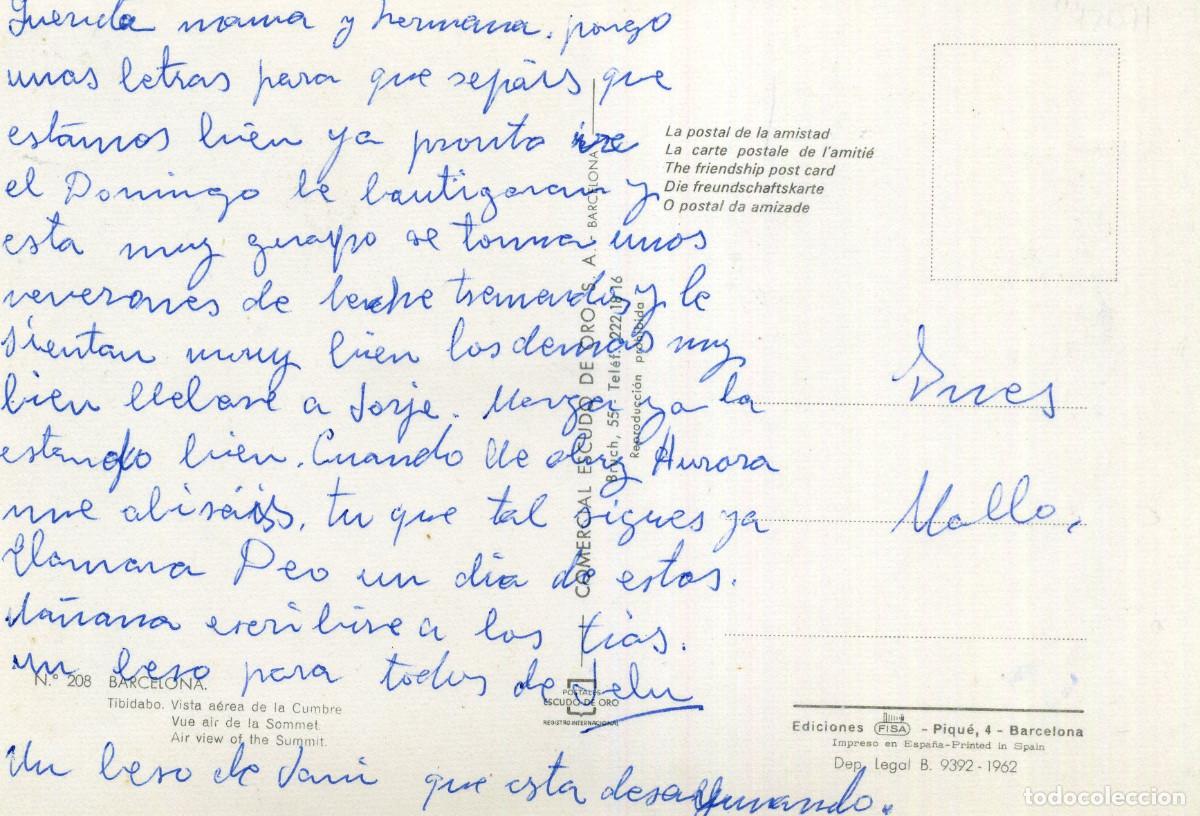 Querida mama y hermana. pongo
unas letras para que sepáis que
estámos bién ya pronto ire
el Domingo le bautizaran y
esta muy guapo se toma unos
veverones de leche tremendos y le
sientan muy bién los demás muy
bien llebare a Jorje. ya la
estando bien. Cuando de Aurora
me abiséis, tu que tal sigues ya
llamara Peo un dia de estos.
Mañana escribire a los tiás.
Un beso para todos de Jelu
Un beso de Javi que esta desayunando.
Ines
Mallo,
La postal de la amistad
La carte postale de l'amitié
The friendship post card
Die freundschaftskarte
O postal da amizade
COMERCIAL ESCUDO DE ORO, S. A. - BARCELONA
Bruch, 55 - Teléf. 222 18 16
Reproducción prohibida
POSTALES
ESCUDO DE ORO
REGISTRO INTERNACIONAL
N.º 208 BARCELONA.
Tibidabo. Vista aérea de la Cumbre
Vue air de la Sommet
Air view of the Summit.
Ediciones FISA - Piqué, 4 - Barcelona
Impreso en España-Printed in Spain
Dep. Legal B. 9392 - 1962
todocoleccion